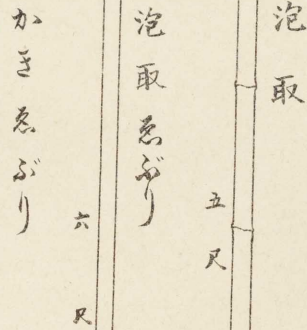 泡取
五尺
泡取ゑぶり
六尺
かきゑぶり